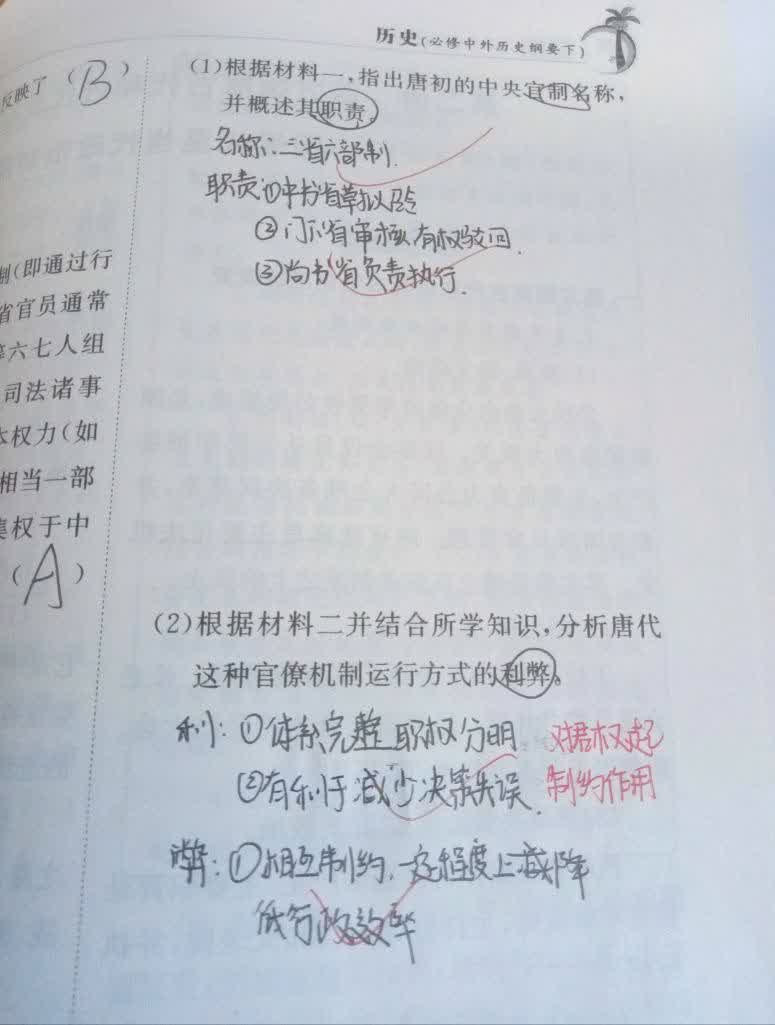 历史(必修中外历史纲要下)
反映了(B)
制(即通过行
省官员通常
六七人组
司法诸事
权力(如
相当一部
集权于中
(A)
(1)根据材料一,指出唐初的中央官制名称,
并概述其职责。
名称:三省六部制.
职责:①中书省草拟诏令
②门下省审核,有权驳回.
③尚书省负责执行.
(2)根据材料二并结合所学知识,分析唐代
这种官僚机制运行方式的利弊。
利:①体系完整 职权分明.
②有利于减少决策失误.
对君权起
制约作用
弊:①相互制约,一定程度上减降
低行政效率